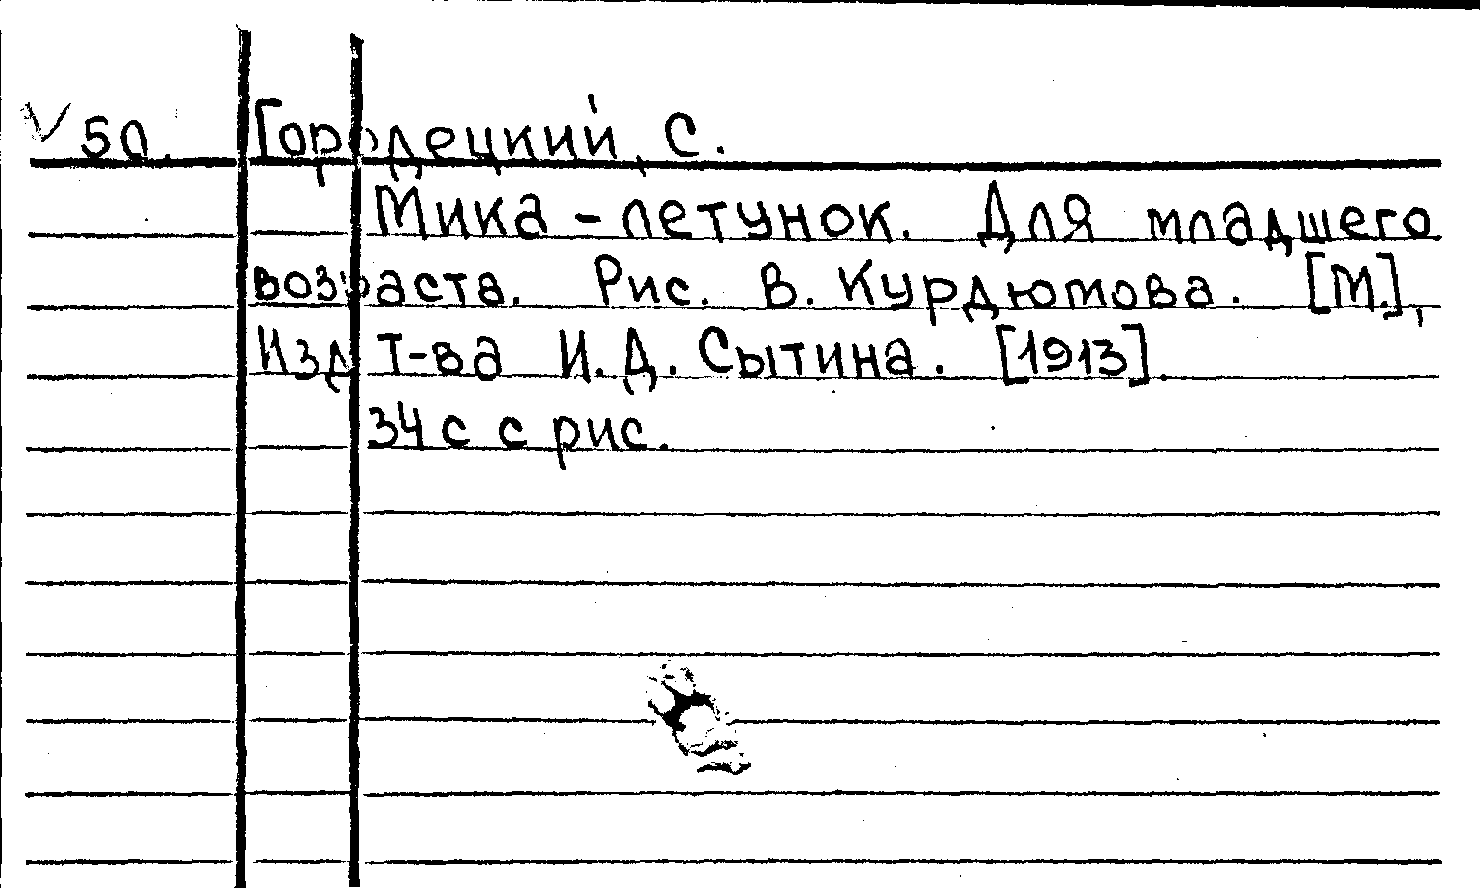 50. Городецкий, С.
Мика-летунок. Для младшего
возраста. Рис. В. Курдюмова. [М.],
Изд Т-ва И.Д. Сытина. [1913].
34 с с рис.